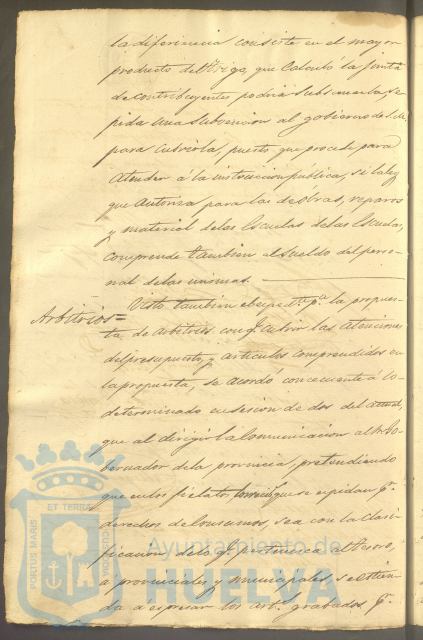 la diferencia consiste en el mayor
producto del trigo, que calculó la Junta
de contribuyentes podria subsanarla, se
pida una subvencion al gobierno de S.M.
para cubrirla, puesto que procede para
atender á la instruccion pública, si la ley
que autoriza para las de obras, reparos
y material de las Escuelas de las Escuelas,
comprende tambien al sueldo del perso-
nal de las mismas.
Arbitrios=
Visto tambien el espedte pa la propues-
ta de arbitrios con q. cubrir las atenciones
del presupuesto, y articulos comprendidos en
la propuesta, se acordó concerniente á lo
determinado en sesion de dos del actual,
que al dirigir la comunicacion al Sr. Go-
bernador de la provincia, pretendiendo
que en los que se espidan pr
derechos de consumos, sea con la clasi-
ficacion de lo q. pertenezca al tesoro,
a provinciales y municipales, se estien-
da a espresar los artos grabados, pr
PORTUS MARIS ET TERRAE CUSTODIA
Ayuntamiento de
HUELVA